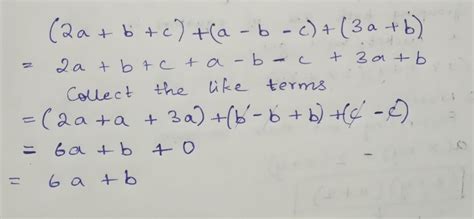 (2a + b + c) + (a - b - c) + (3a + b)
= 2a + b + c + a - b - c + 3a + b
Collect the like terms
= (2a + a + 3a) + (b - b + b) + (c - c)
= 6a + b + 0
= 6a + b